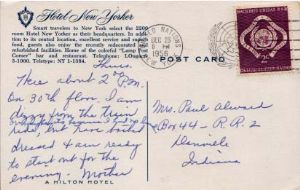 Hotel New Yorker
Smart travelers in New York select the 2500
room Hotel New Yorker as their headquarters. In addition
to its central location, excellent service and superb
food, guests also enjoy the recently redecorated and
refurbished facilities. Home of the colorful "Lamp Post
Corner" bar and restaurant. Telephone: LOngacre
3-1000. Teletype: NY 1-1384.
POST CARD
NATIONS
DEC 28
PM
1956
UNITED NATIONS
Thurs.
Here about 2 P.M.
On 30th floor. I am
from the train
ride, but have
dressed & am ready
to start out for the
evening. Mother
Mrs. Paul Alward
Box 44 - R.R. 2
Indiana
A HILTON HOTEL